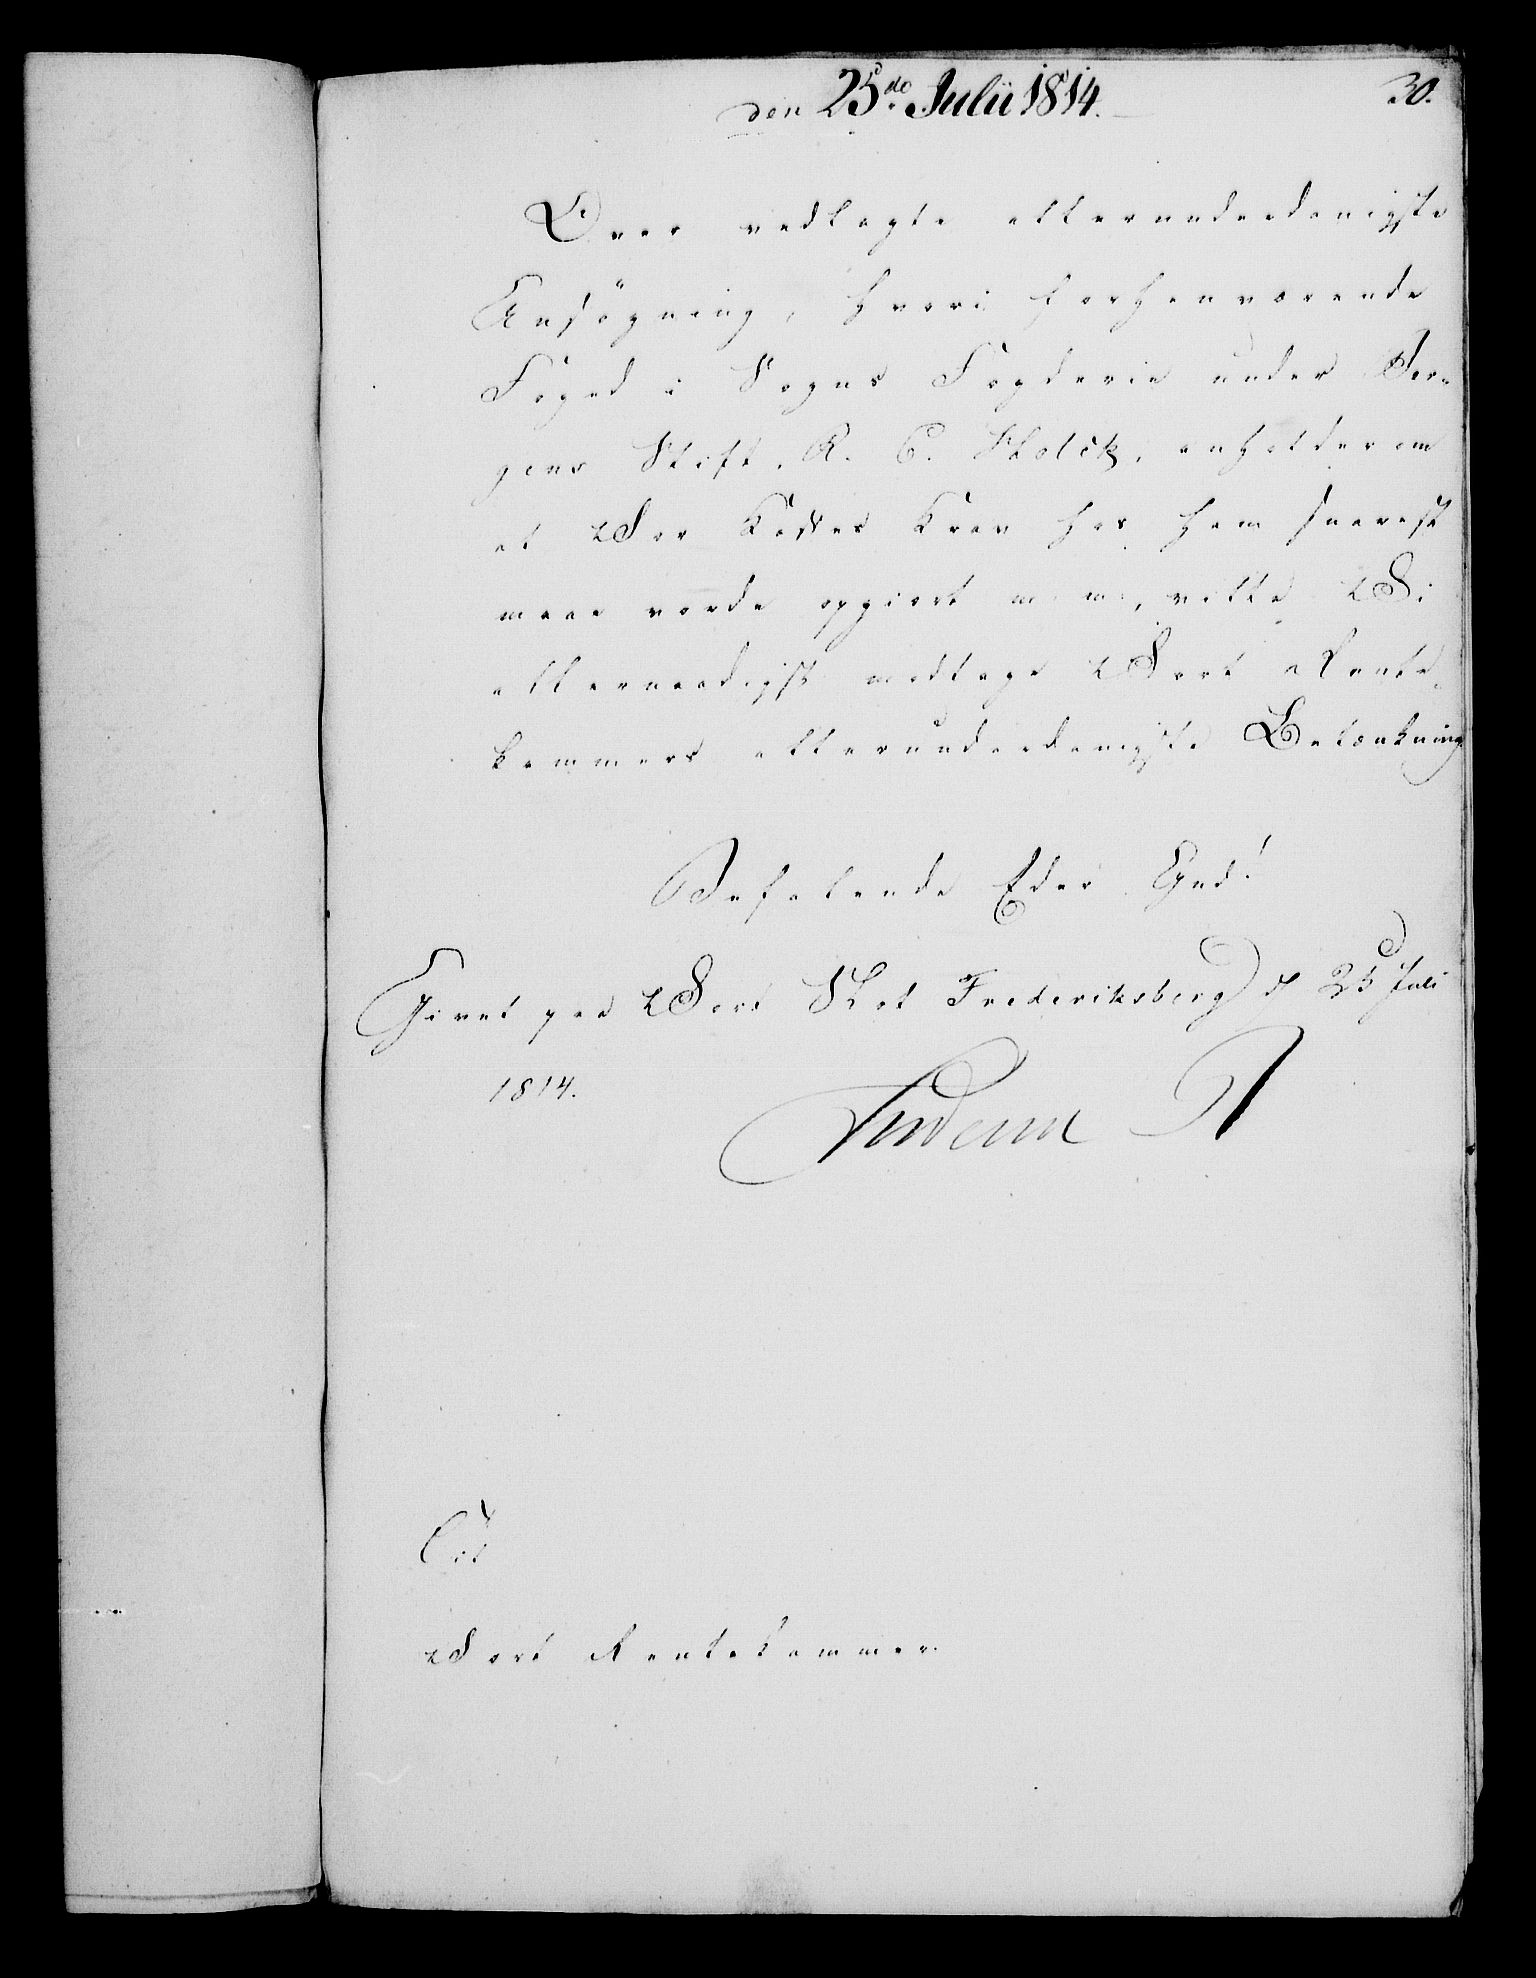 den 25de Julii 1814.
30.
Over vedlagte allerunderdanigste
Ansögning, hvori forhenværende
Foged i Sogns Fogderie under Ber-
gens Stift, R. C. anholder om
at Vor Kasses Krav hos ham snarest
maae vorde opgiort m. m., ville Vi
allernaadigst modtage Vort Rente-
kammers allerunderdanigste Betænkning
Befalende Eder Gud!
Givet paa Vort Slot Frederiksberg d 25 Juli
1814.
Frederik R
Til
Vort Rentekammer.